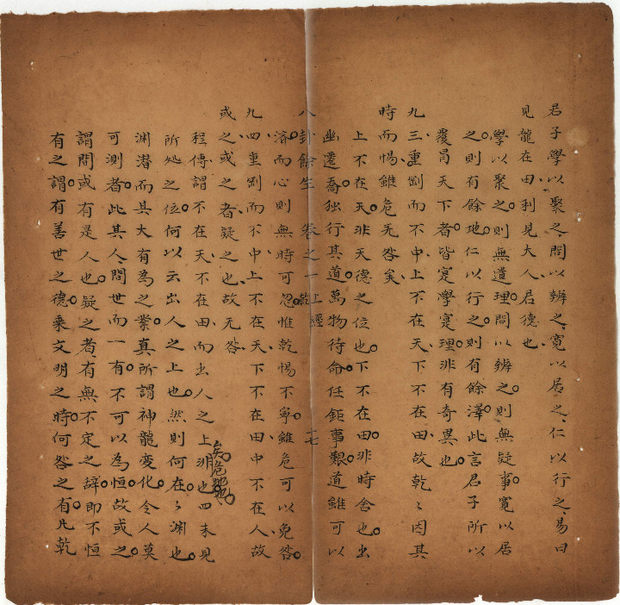 君子學以聚之、問以辨之、寬以居之、仁以行之、易曰
見龍在田利見大人、君德也、
學以聚之則無遺理、問以辨之則無疑事、寬以居
之則有餘地、仁以行之則有餘澤、此言君子所以
覆冒天下者、皆寔學寔理、非有奇異也、
九三、重剛而不中、上不在天、下不在田、故乾乾因其
時而惕、雖危无咎矣、
上不在天、非天德之位也、下不在田、非時舍也、出
幽遷喬、獨行其道、萬物待命、任鉅事艱、道雖可以
八卦餘生 卷之一 上經 乾 十七
濟、而心則無時可忽、惟乾惕不寧、雖危可以免咎、
九四、重剛而不中、上不在天、下不在田、中不在人、故
或之、或之者、疑之也、故无咎、
程傳謂不在天不在田、而出人之上、非也、四未見
矣危地也
所處之位、何以云出人之上也、然則何在、在淵也、
淵潛而其大有為之業、真所謂神龍變化、令人莫
可測者、此其人、間世而一有、不可以為恒、故或之、
謂間或有是人也、疑之者、有無不定之辭、即不恒
有之謂、有善世之德、乘文明之時、何咎之有、凡乾